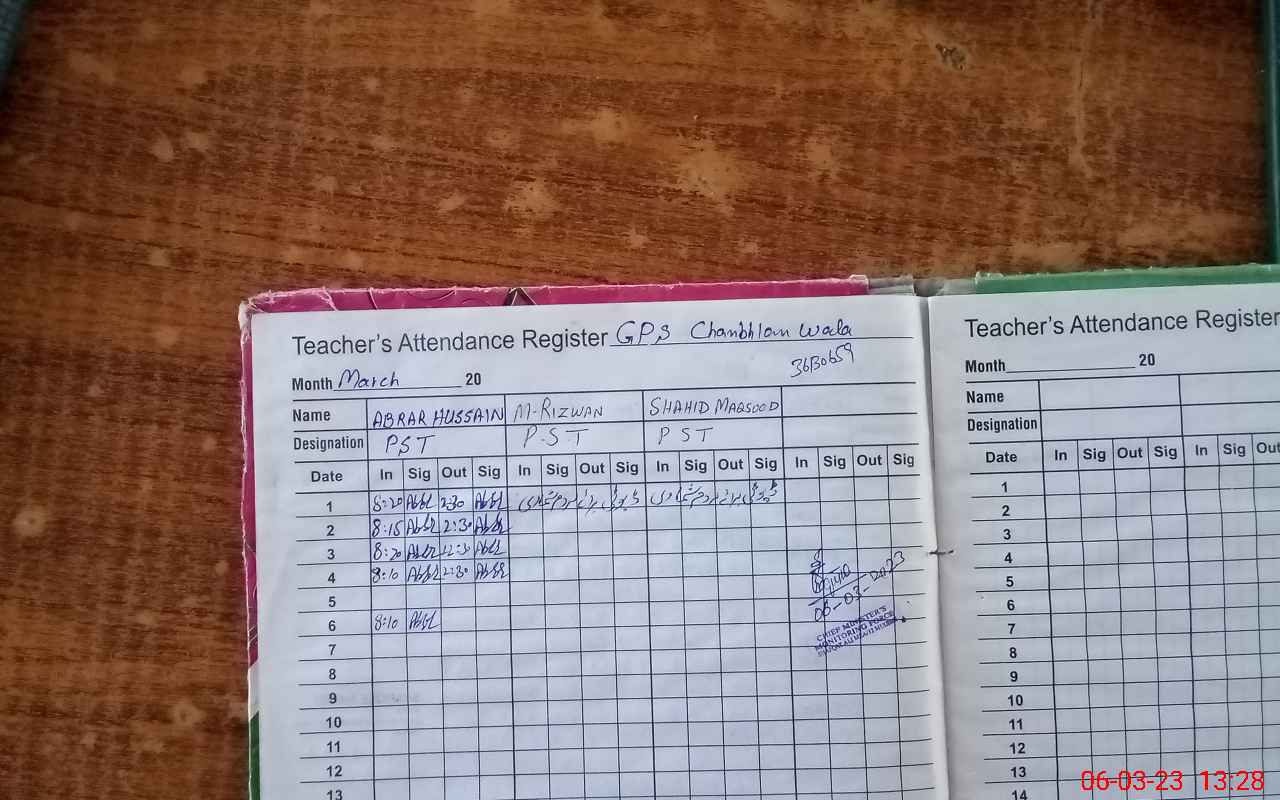 Teacher's Attendance Register GPS Chanbhlam wala
36130659
Month March 20
Name ABRAR HUSSAIN M-RIZWAN SHAHID MAQSOOD
Designation PST P-ST PST
Date In Sig Out Sig In Sig Out Sig In Sig Out Sig In Sig Out Sig
1 8:20 2:30
2 8:15 2:30
3 8:20
4 8:10 2:30
5
6 8:10
7
8
9
10
11
12
13
06-03-2023
CHIEF MINISTER'S
MONITORING FORCE
Teacher's Attendance Register
Month 20
Name
Designation
Date In Sig Out Sig In Sig Out
1
2
3
4
5
6
7
8
9
10
11
12
13
14
06-03-23 13:28